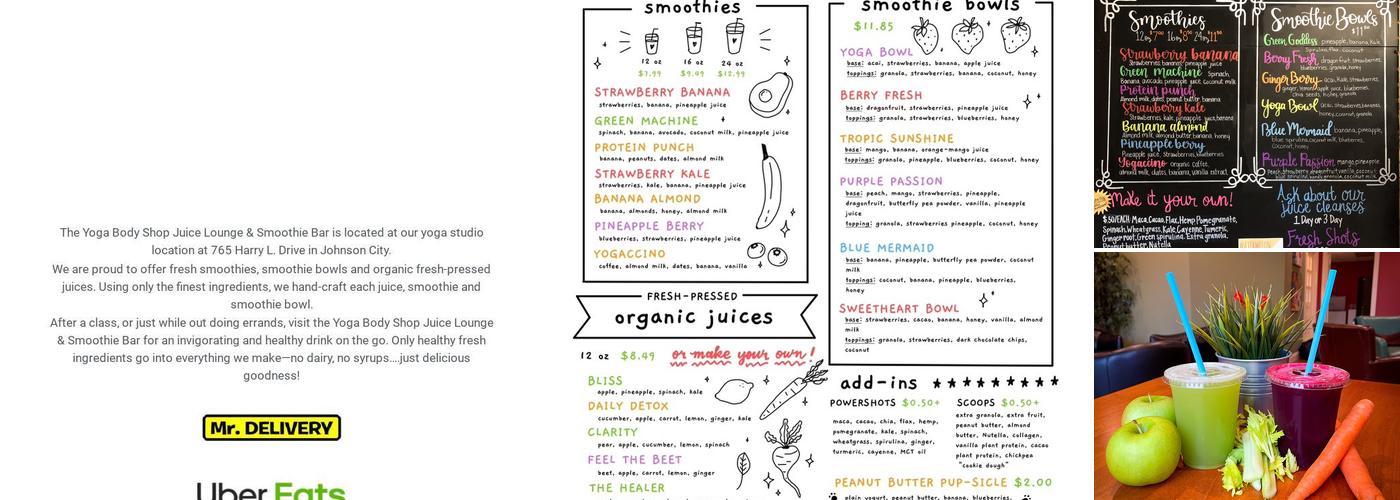 The Yoga Body Shop Juice Lounge & Smoothie Bar is located at our yoga studio
location at 765 Harry L. Drive in Johnson City.
We are proud to offer fresh smoothies, smoothie bowls and organic fresh-pressed
juices. Using only the finest ingredients, we hand-craft each juice, smoothie and
smoothie bowl.
After a class, or just while out doing errands, visit the Yoga Body Shop Juice Lounge
& Smoothie Bar for an invigorating and healthy drink on the go. Only healthy fresh
ingredients go into everything we make—no dairy, no syrups....just delicious
goodness!
Mr. DELIVERY
Uber Eats
smoothies
12 oz 16 oz 24 oz
$7.99 $9.49 $12.99
STRAWBERRY BANANA
strawberries, banana, pineapple juice
GREEN MACHINE
spinach, banana, avocado, coconut milk, pineapple juice
PROTEIN PUNCH
banana, peanuts, dates, almond milk
STRAWBERRY KALE
strawberries, kale, banana, pineapple juice
BANANA ALMOND
banana, almonds, honey, almond milk
PINEAPPLE BERRY
blueberries, strawberries, pineapple juice
YOGACCINO
coffee, almond milk, dates, banana, vanilla
FRESH-PRESSED
organic juices
12 oz $8.49 or make your own!
BLISS
apple, pineapple, spinach, kale
DAILY DETOX
cucumber, apple, carrot, lemon, ginger, kale
CLARITY
pear, apple, cucumber, lemon, spinach
FEEL THE BEET
beet, apple, carrot, lemon, ginger
THE HEALER
smoothie bowls
$11.85
YOGA BOWL
base: acai, strawberries, banana, apple juice
toppings: granola, strawberries, banana, coconut, honey
BERRY FRESH
base: dragonfruit, strawberries, pineapple juice
toppings: granola, strawberries, blueberries, honey
TROPIC SUNSHINE
base: mango, banana, orange-mango juice
toppings: granola, pineapple, blueberries, coconut, honey
PURPLE PASSION
base: peach, mango, strawberries, pineapple,
dragonfruit, butterfly pea powder, vanilla, pineapple
juice
topping: granola, strawberries pineapple, coconut, honey
BLUE MERMAID
base: banana, pineapple, butterfly pea powder, coconut
milk
toppings: coconut, banana, pineapple, blueberries,
honey
SWEETHEART BOWL
base: strawberries, cacao, banana, honey, vanilla, almond
milk
toppings: granola, strawberries, dark chocolate chips,
coconut
add-ins
POWERSHOTS $0.50+
maca, cacao, chia, flax, hemp,
pomegranate, kale, spinach,
wheatgrass, spirulina, ginger,
turmeric, cayenne, MCT oil
SCOOPS $0.50+
extra granola, extra fruit,
peanut butter, almond
butter, Nutella, collagen,
vanilla plant protein, cacao
plant protein, chickpea
"cookie dough"
PEANUT BUTTER PUP-SICLE $2.00
plain yogurt, peanut butter, banana, blueberries,
Smoothies
Strawberry banana
Strawberries, banana, pineapple juice
Green machine Spinach,
Banana, avocado, pineapple juice, coconut milk
Protein punch
Almond milk, dates, peanut butter, banana
Strawberry Kale
Strawberries, Kale, pineapple juice, banana
Banana almond
Almond milk, almond butter, banana, honey
Pineapple berry
Pineapple juice, Strawberries, blueberries
Yogaccino organic coffee,
almond milk, dates, banana, vanilla extract
Make it your own!
Maca, Cacao, Flax, Hemp, Pomegranate,
Spinach, Wheatgrass, Kale, Cayenne, Turmeric,
Ginger root, Green spirulina, Extra granola,
Peanut butter, Nutella
Smoothie Bowls
Green Goddess pineapple, banana, Kale
Berry Fresh dragonfruit, strawberries,
blueberries, granola, honey
Ginger Berry acai, Kale, strawberries,
Yoga Bowl acai, strawberries, bananas,
Blue Mermaid banana, pineapple,
Purple Passion mango, pineapple,
Ask about our
juice cleanses
1 Day or 3 Day
Fresh Shots